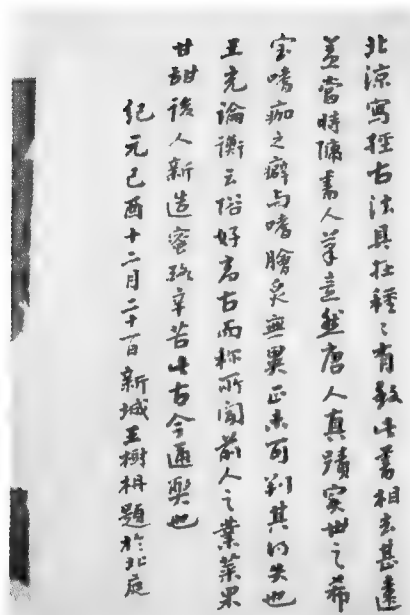 北涼寫經古法具在種種有致此書相去甚遠
蓋當時傭書人筆意然唐人真蹟實世之希
宝嗜痂之癖与嗜膾炙無異正未可判其得失也
王充論衡云俗好高古而称所聞前人之業菜果
甘甜後人新造蜜酪辛苦此古今通弊也
紀元己酉十二月二十一日新城王樹枏題於北庭